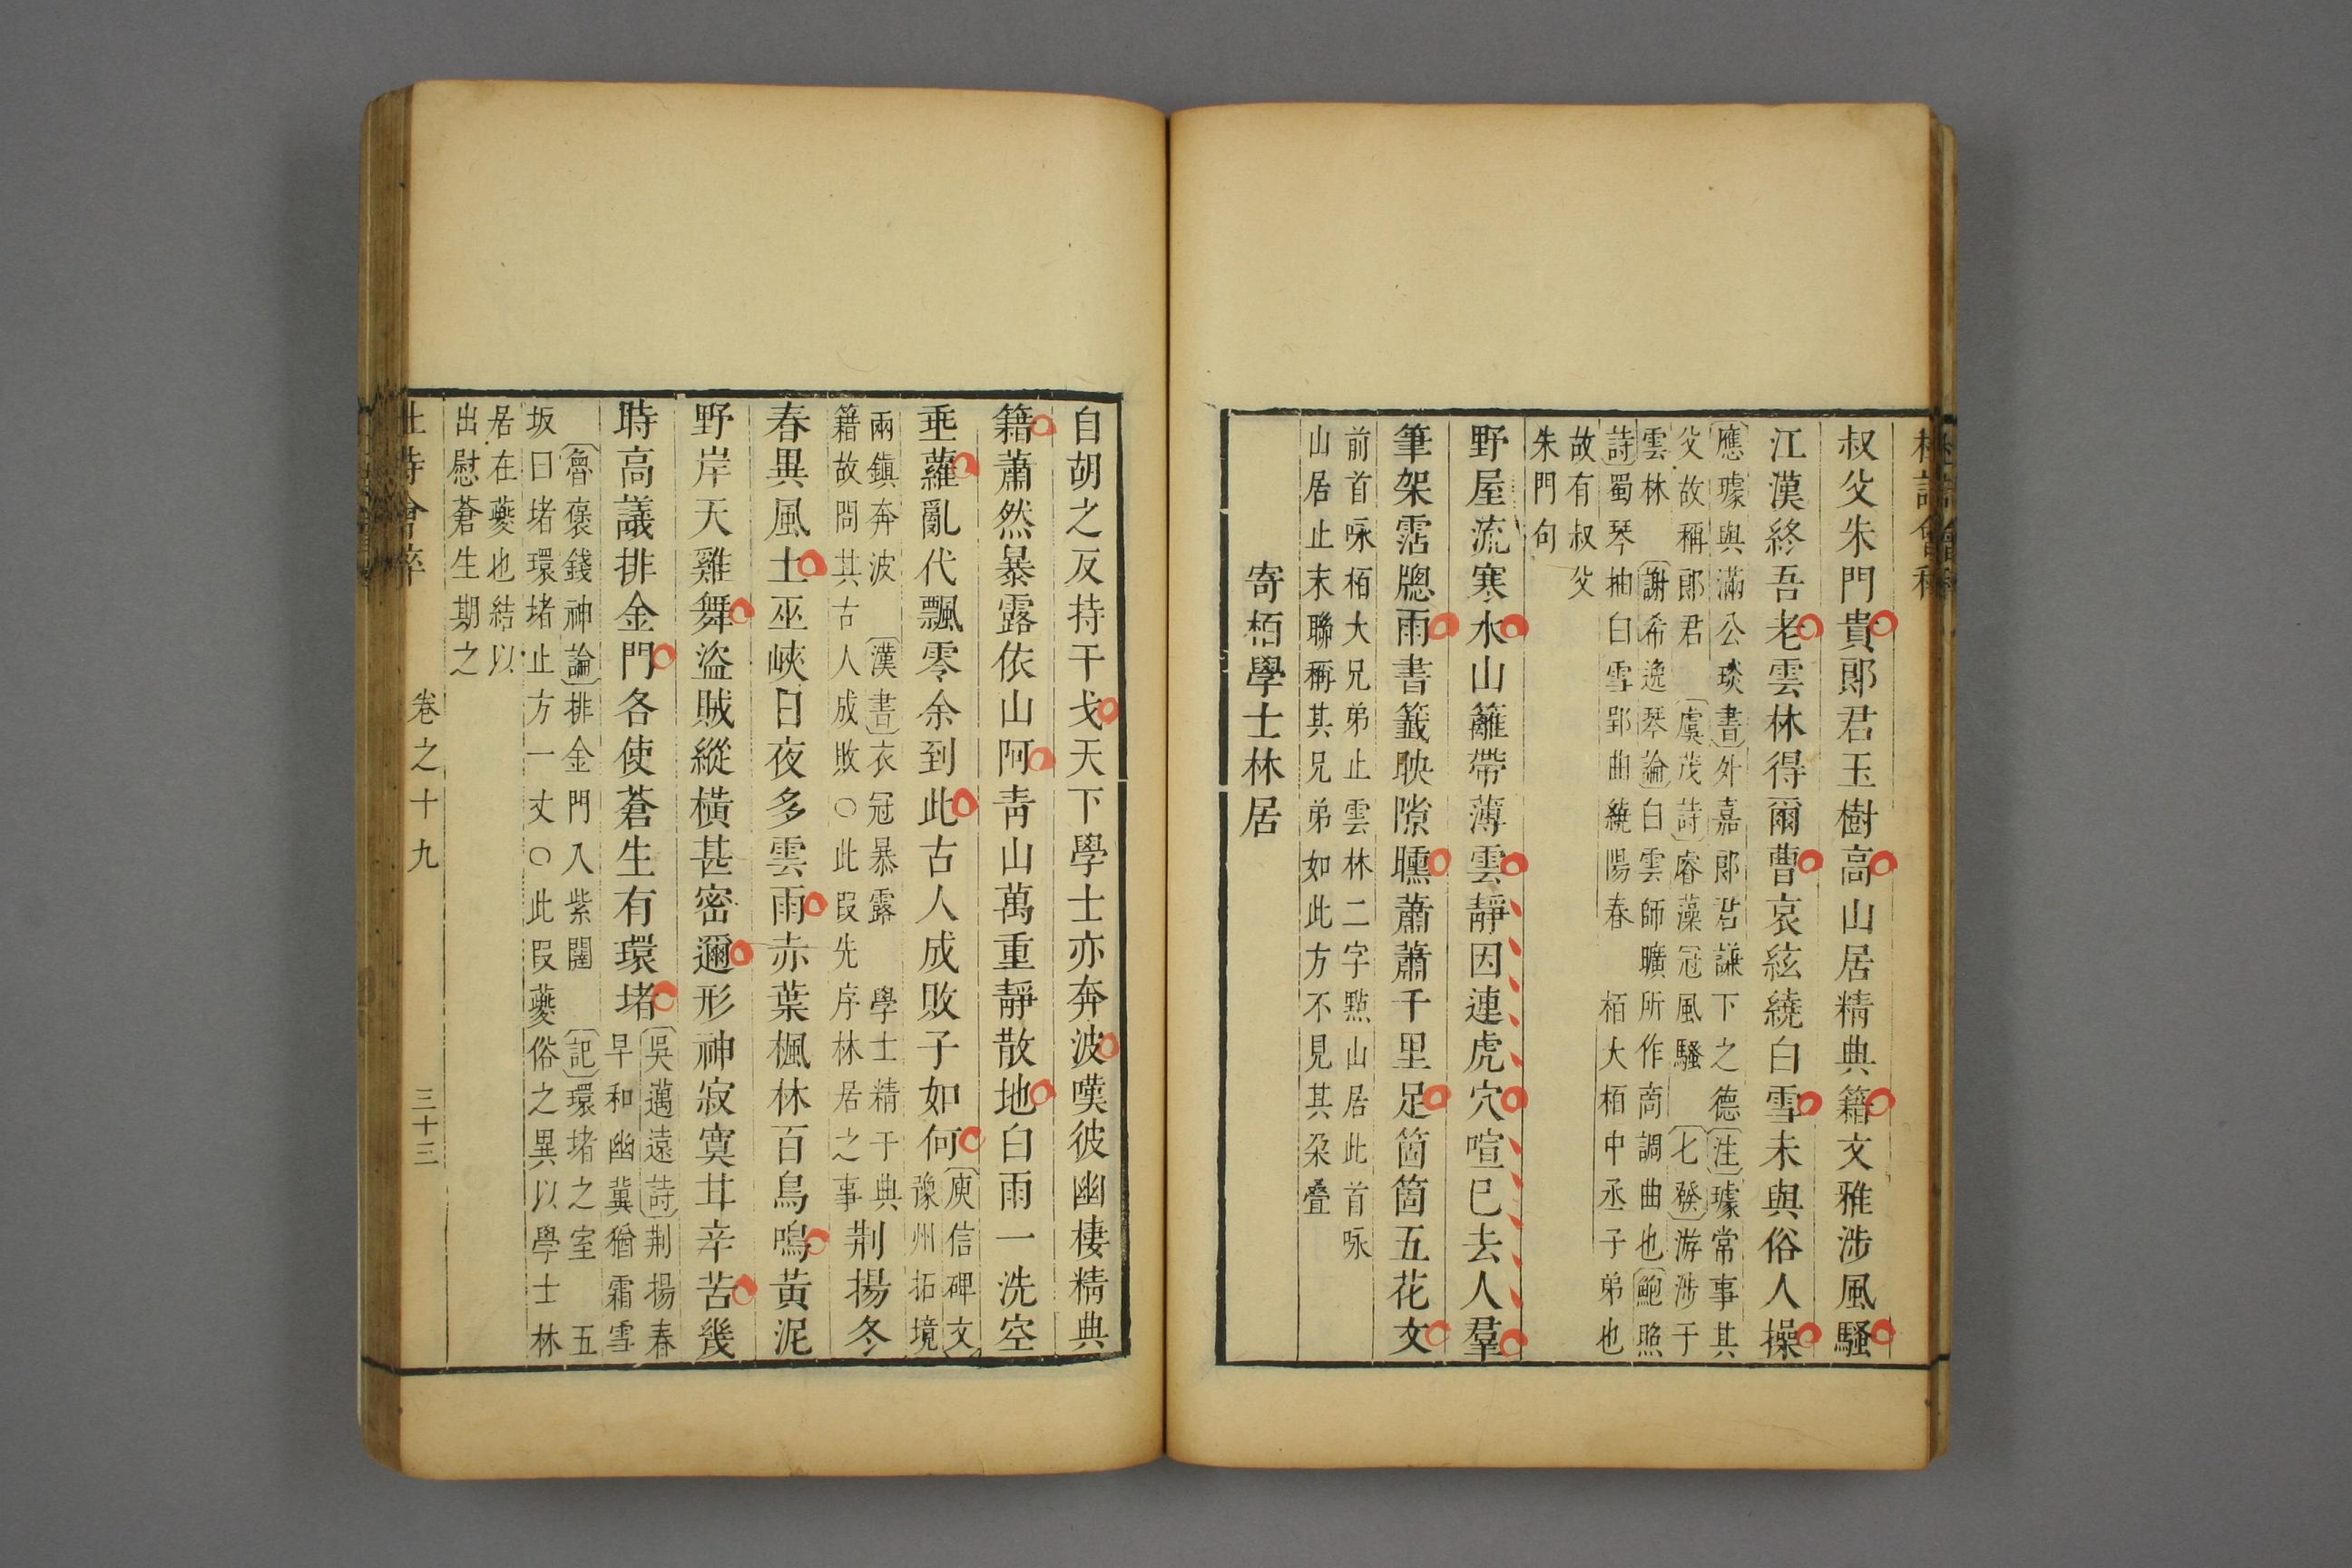 叔父朱門貴郞君玉樹高山居精典籍文雅涉風騷
江漢終吾老雲林得爾曹哀絃繞白雪未與俗人操
應璩與滿公琰書外嘉郞君謙下之德注璩常事其
父故稱郞君 虞茂詩睿藻冠風騷 七發游涉于
雲林 謝希逸琴論白雲師曠所作商調曲也鮑照
詩蜀琴抽白雪郢曲繞陽春 栢大栢中丞子弟也
故有叔父
朱門句
野屋流寒水山籬帶薄雲靜因連虎穴喧已去人羣
筆架霑牕雨書籤映隙曛蕭蕭千里足箇箇五花文
前首咏栢大兄弟止雲林二字點山居此首咏
山居止末聯稱其兄弟如此方不見其朶疊
寄栢學士林居
自胡之反持干戈天下學士亦奔波嘆彼幽棲精典
籍蕭然暴露依山阿靑山萬重靜散地白雨一洗空
垂蘿亂代飄零余到此古人成敗子如何
庾信碑文
豫州拓境
兩鎭奔波 漢書衣冠暴露 學士精于典
籍故問其古人成敗○此段先序林居之事
荆揚冬
春異風土巫峽日夜多雲雨赤葉楓林百鳥鳴黃泥
野岸天雞舞盜賊縱橫甚密邇形神寂寞甘辛苦幾
時高議排金門各使蒼生有環堵
吳邁遠詩荆揚春
早和幽冀猶霜雪
魯褒錢神論排金門入紫闥 記環堵之室 五
坂曰堵環堵止方一丈○此段夔俗之異以學士林
居在夔也結以
出慰蒼生期之
卷之十九
三十三